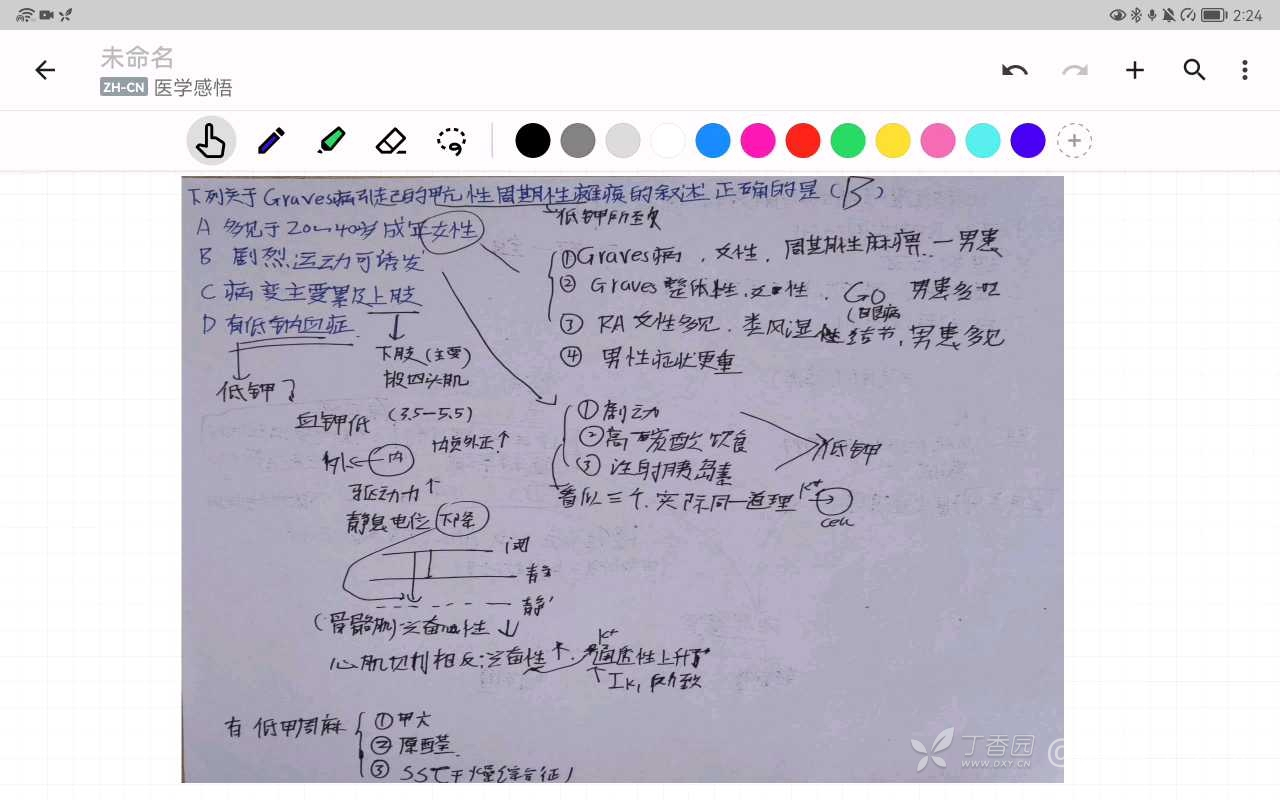 2:24
未命名
ZH-CN 医学感悟
下列关于Graves病引起的甲亢性周期性瘫痪的叙述正确的是(B)
低钾所至
A 多见于20~40岁成年女性
B 剧烈运动可诱发
C 病变主要累及上肢
D 有低钠血症
下肢(主要)
股四头肌
低钾了
①Graves病,女性,周期性麻痹—男患
② Graves整体性,女性,GO 男患多见
③ RA女性多见,类风湿性结节,男患多见
④ 男性症状更重
血钾低 (3.5-5.5)
内负外正↑
外←内
驱动力↑
静息电位下降
阈
静
静'
(骨骼肌)兴奋性↓
心肌切利相反:兴奋性↑,K+通透性上升
↑IK1所致
①剧动
②高碳酸饮食
③注射胰岛素
低钾
看似三个,实际同一道理 K+
cell
有低甲周麻
①甲大
②原醛
③SS(干燥综合征)
丁香园
WWW.DXY.CN
@